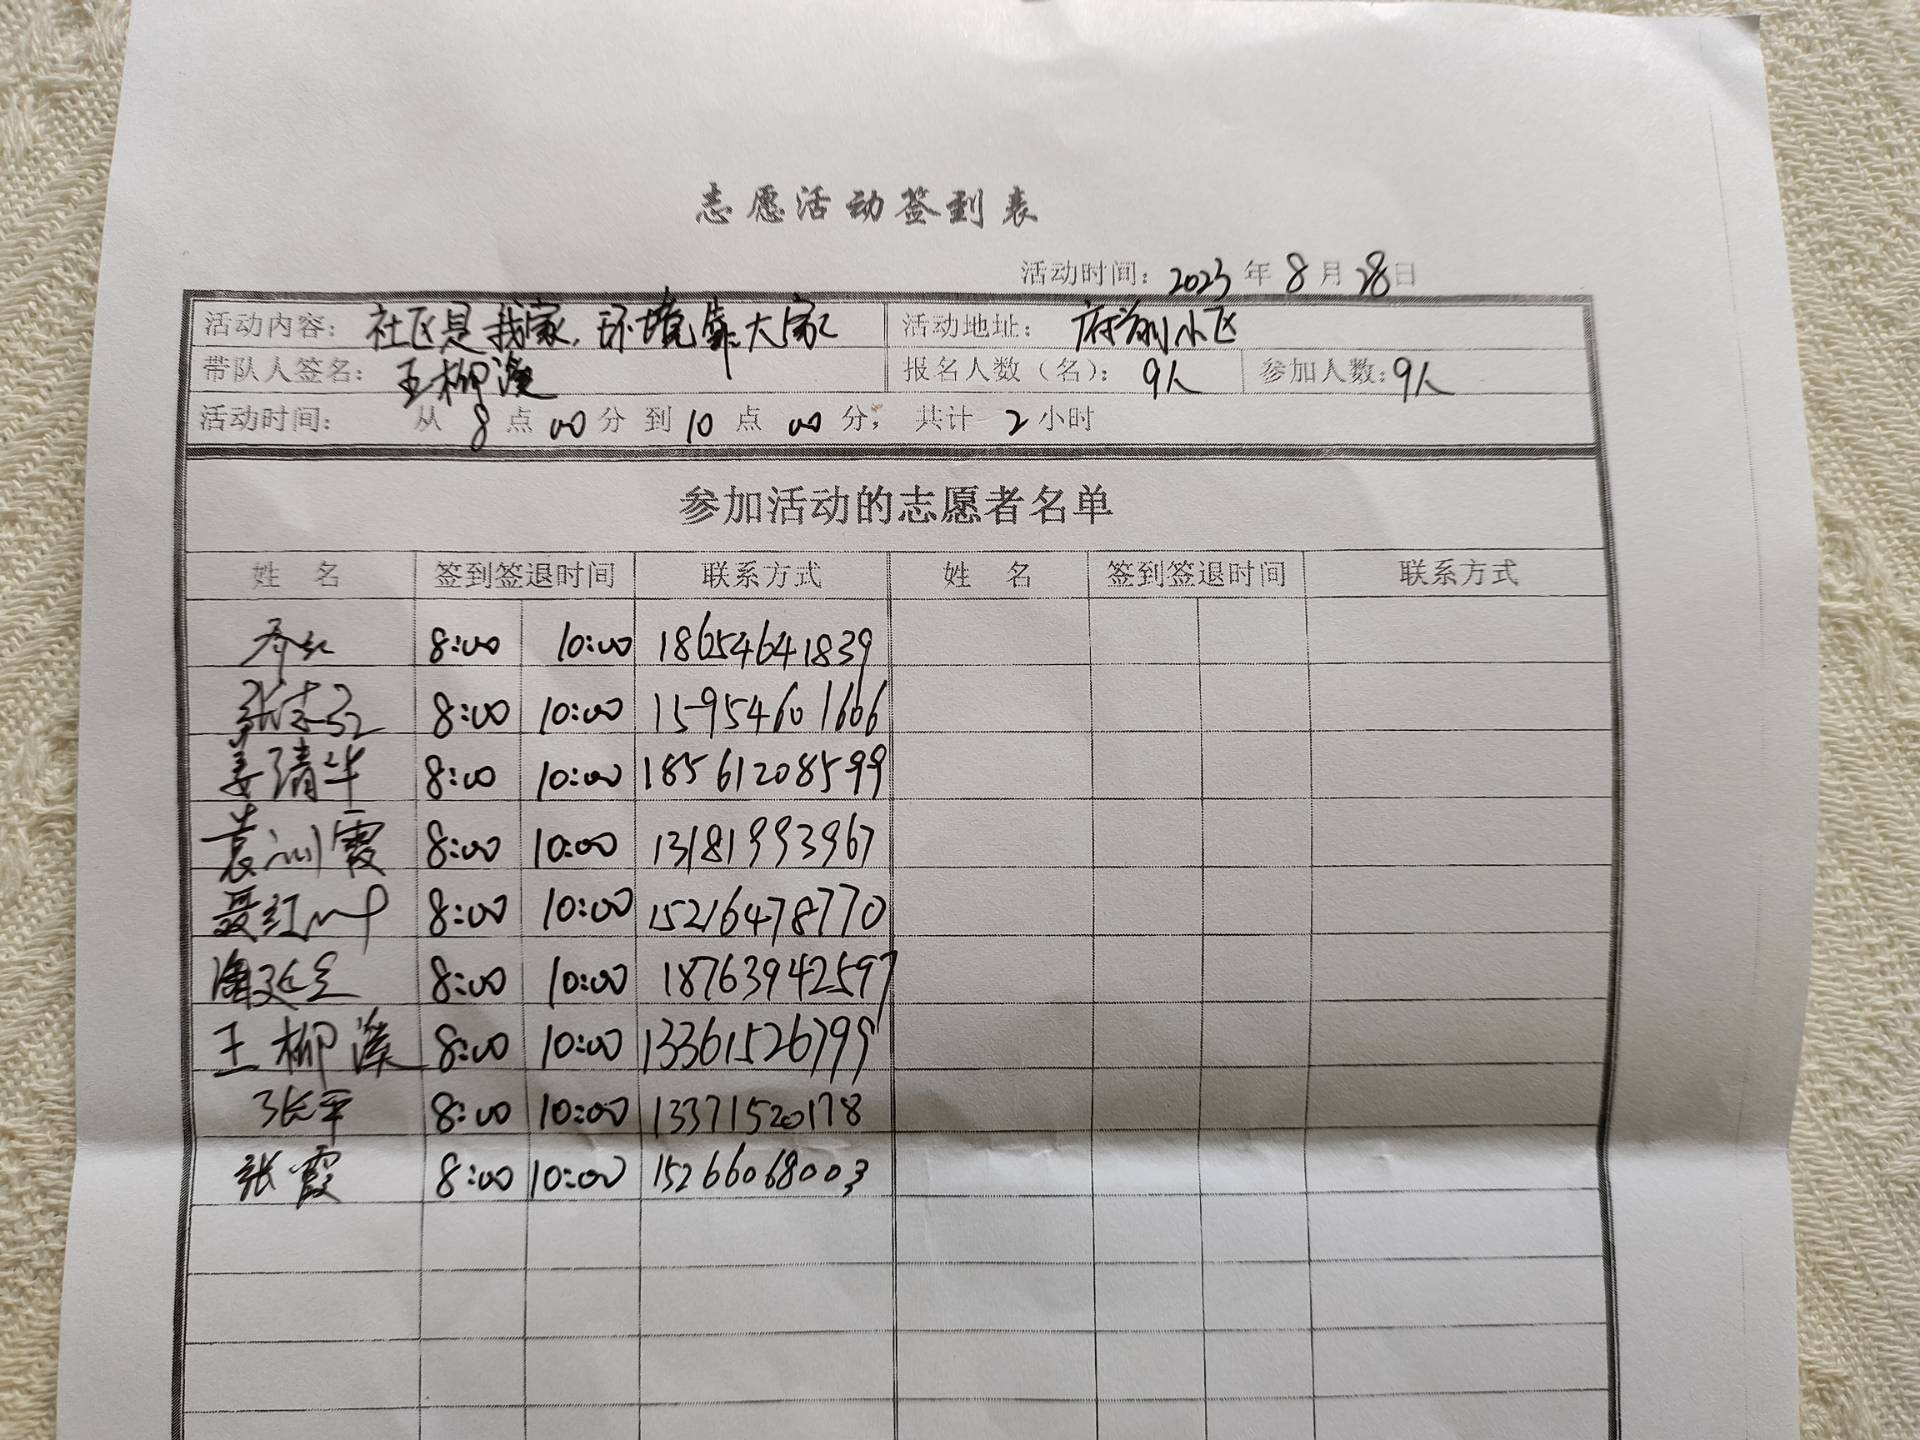 志愿活动签到表
活动时间：2023年8月28日
活动内容：社区是我家，环境靠大家 活动地址：府前小区
带队人签名：王柳溪 报名人数（名）：9人 参加人数：9人
活动时间： 从8点00分到10点00分，共计2小时
参加活动的志愿者名单
姓 名 签到签退时间 联系方式 姓 名 签到签退时间 联系方式
8:00 10:00 18654641839
8:00 10:00 15954601666
姜清华 8:00 10:00 18561208599
袁训霞 8:00 10:00 13181993967
聂红 8:00 10:00 15216478770
8:00 10:00 18763942597
王柳溪 8:00 10:00 13361526799
张平 8:00 10:00 13371520178
张霞 8:00 10:00 15266068003